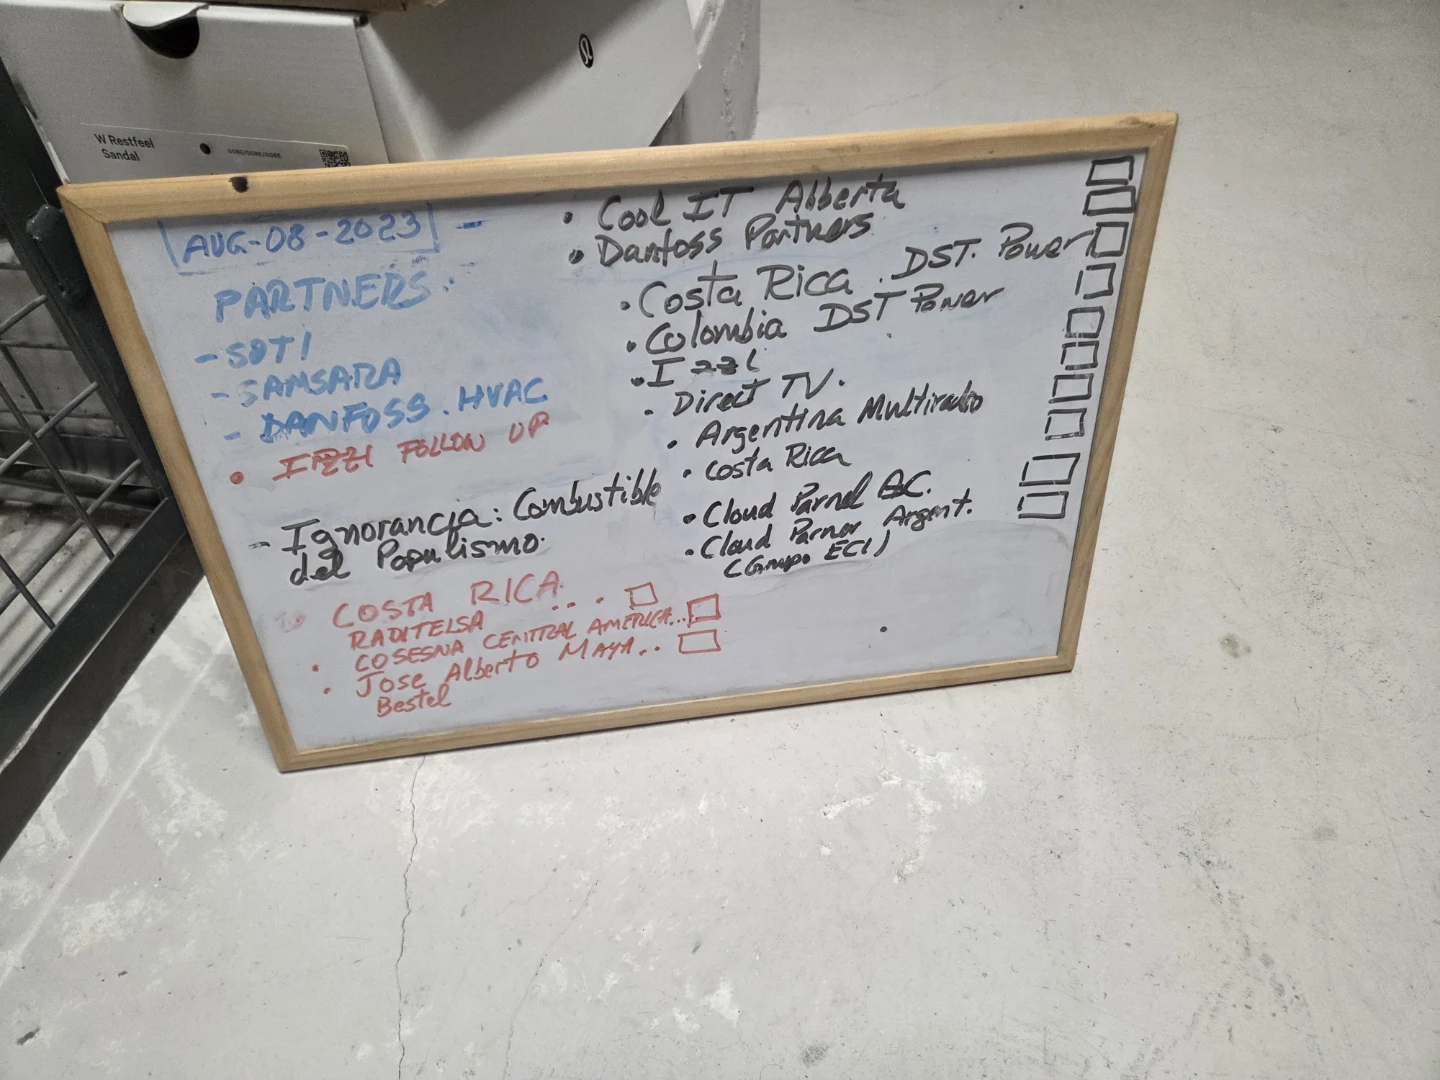 W Restfeel
Sandal
AUG-08-2023 -
PARTNERS:
- SOTI
- SAMSARA
- DANFOSS. HVAC
• IZZI FOLLOW UP
- Ignorancia: Combustible
del Populismo.
COSTA RICA
RADITELSA ...
• COSESNA CENTRAL AMERICA...
• Jose Alberto MAYA..
Bestel
• Cool IT Alberta
• Danfoss Partners
• Costa Rica . DST. Power
• Colombia DST Power
• Izzi
• Direct TV.
• Argentina Multiradio
• Costa Rica
• Cloud Parnel
• Cloud Parner Argent.
(Grupo ECI)